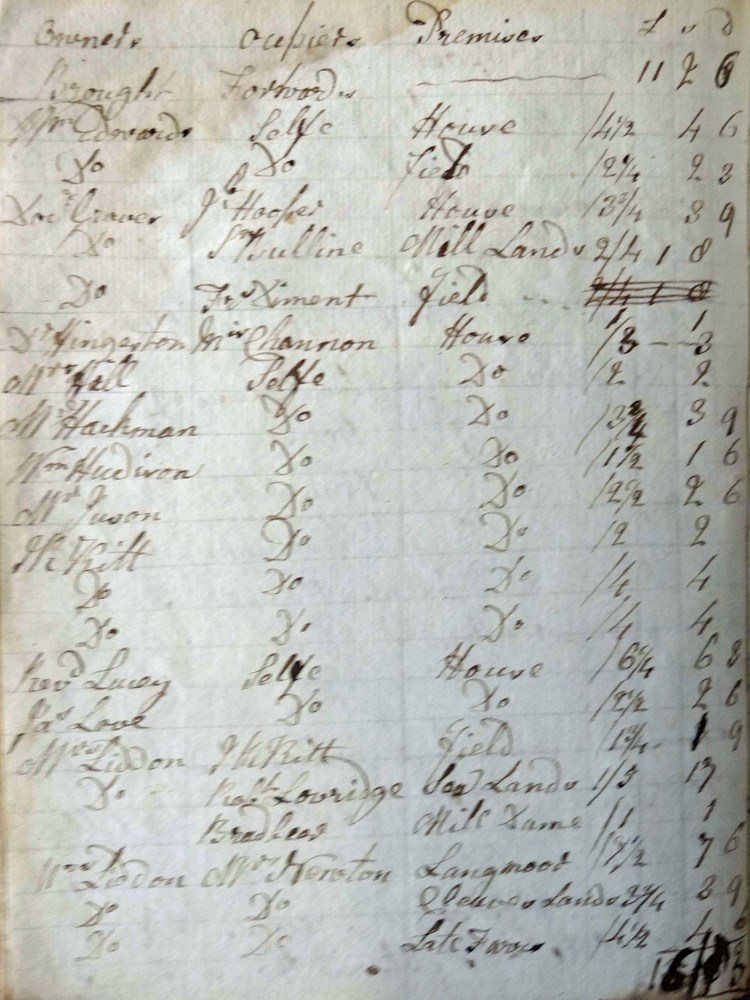 Owners Ocupiers Premises £ s d
Brought Forwards 11 2 6
Wm Edwards Selfe House /4½ 4 6
Do Do Field /2¼ 2 3
Docr Craver Jn Hooper House /3¾ 3 9
Do Bulline Mill Lands 2/4 1 8
Do Frs Diment Field
Dr Hingerton Mis Channon House /3 3
Mrs Hall Selfe Do /2 2
Mr Hackman Do Do /3¾ 3 9
Wm Hudson Do Do /1½ 1 6
Mr Juson Do Do /2½ 2 6
Jn Kitt Do Do /2 2
Do Do Do /4 4
Do Do Do /4 4
Revd Lucey Selfe House /6¼ 6 3
Jas Love Do Do /2½ 2 6
Mrs Liddon Jn Kitt Field /1¾ 1 9
Do Robt Lovridge Lands 1/5 17
Bradbear Mill Dame /1 1
Mrs Liddon Mrs Newton Langmoor /7½ 7 6
Do Do Cleaves Lands 3¾ 3 9
Do Do Late /4½ 4 6